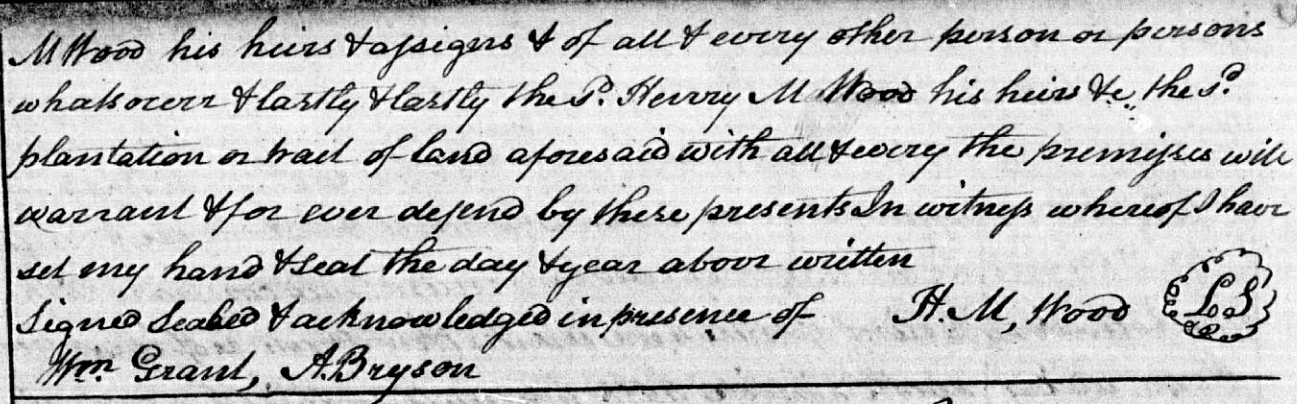 M Wood his heirs & assigns & of all & every other person or persons
whatsoever & lastly & lastly the Sd. Henry M Wood his heirs &c,, the Sd.
plantation or tract of land aforesaid with all & every the premisses will
warrant & for ever defend by these presents In witness whereof I have
set my hand & seal the day & year above written
Signed Sealed & acknowledged in presence of H. M, Wood L S
Wm Grant, A. Bryson